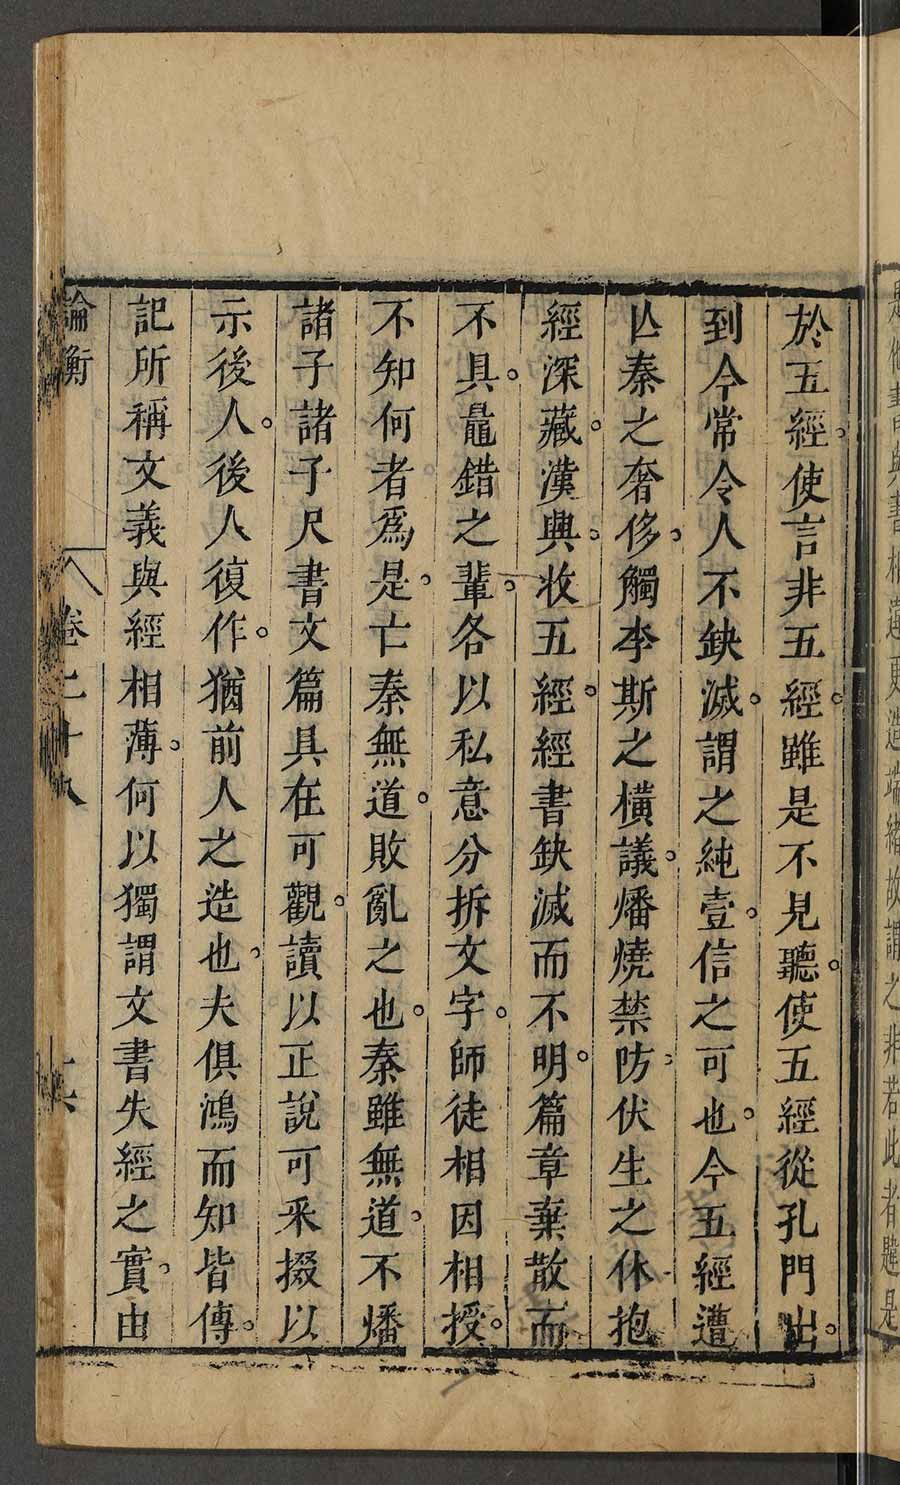 於五經。使言非五經。雖是不見聽。使五經從孔門出。
到今常令人不缺滅。謂之純壹。信之可也。今五經遭
亾秦之奢侈。觸李斯之橫議。燔燒禁防。伏生之休抱
經深藏。漢興。收五經。經書缺滅而不明。篇章棄散而
不具。鼂錯之輩。各以私意分拆文字。師徒相因相授。
不知何者爲是。亡秦無道。敗亂之也。秦雖無道。不燔
諸子。諸子尺書文篇具在可觀。讀以正說可采掇以
示後人。後人復作。猶前人之造也。夫俱鴻而知皆傳。
記所稱文義與經相薄。何以獨謂文書失經之實。由
論衡 卷二十八